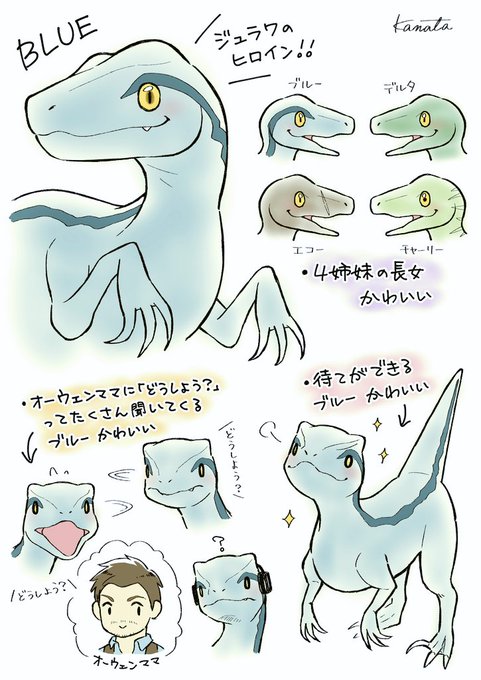 BLUE
ジュラワの
ヒロイン!!
Kanata
ブルー
デルタ
エコー
チャーリー
・4姉妹の長女
かわいい
・オーウェンママに「どうしよう?」
ってたくさん聞いてくる
ブルー かわいい
・待てができる
ブルー かわいい
どうしよう?
?
どうしよう?
オーウェンママ